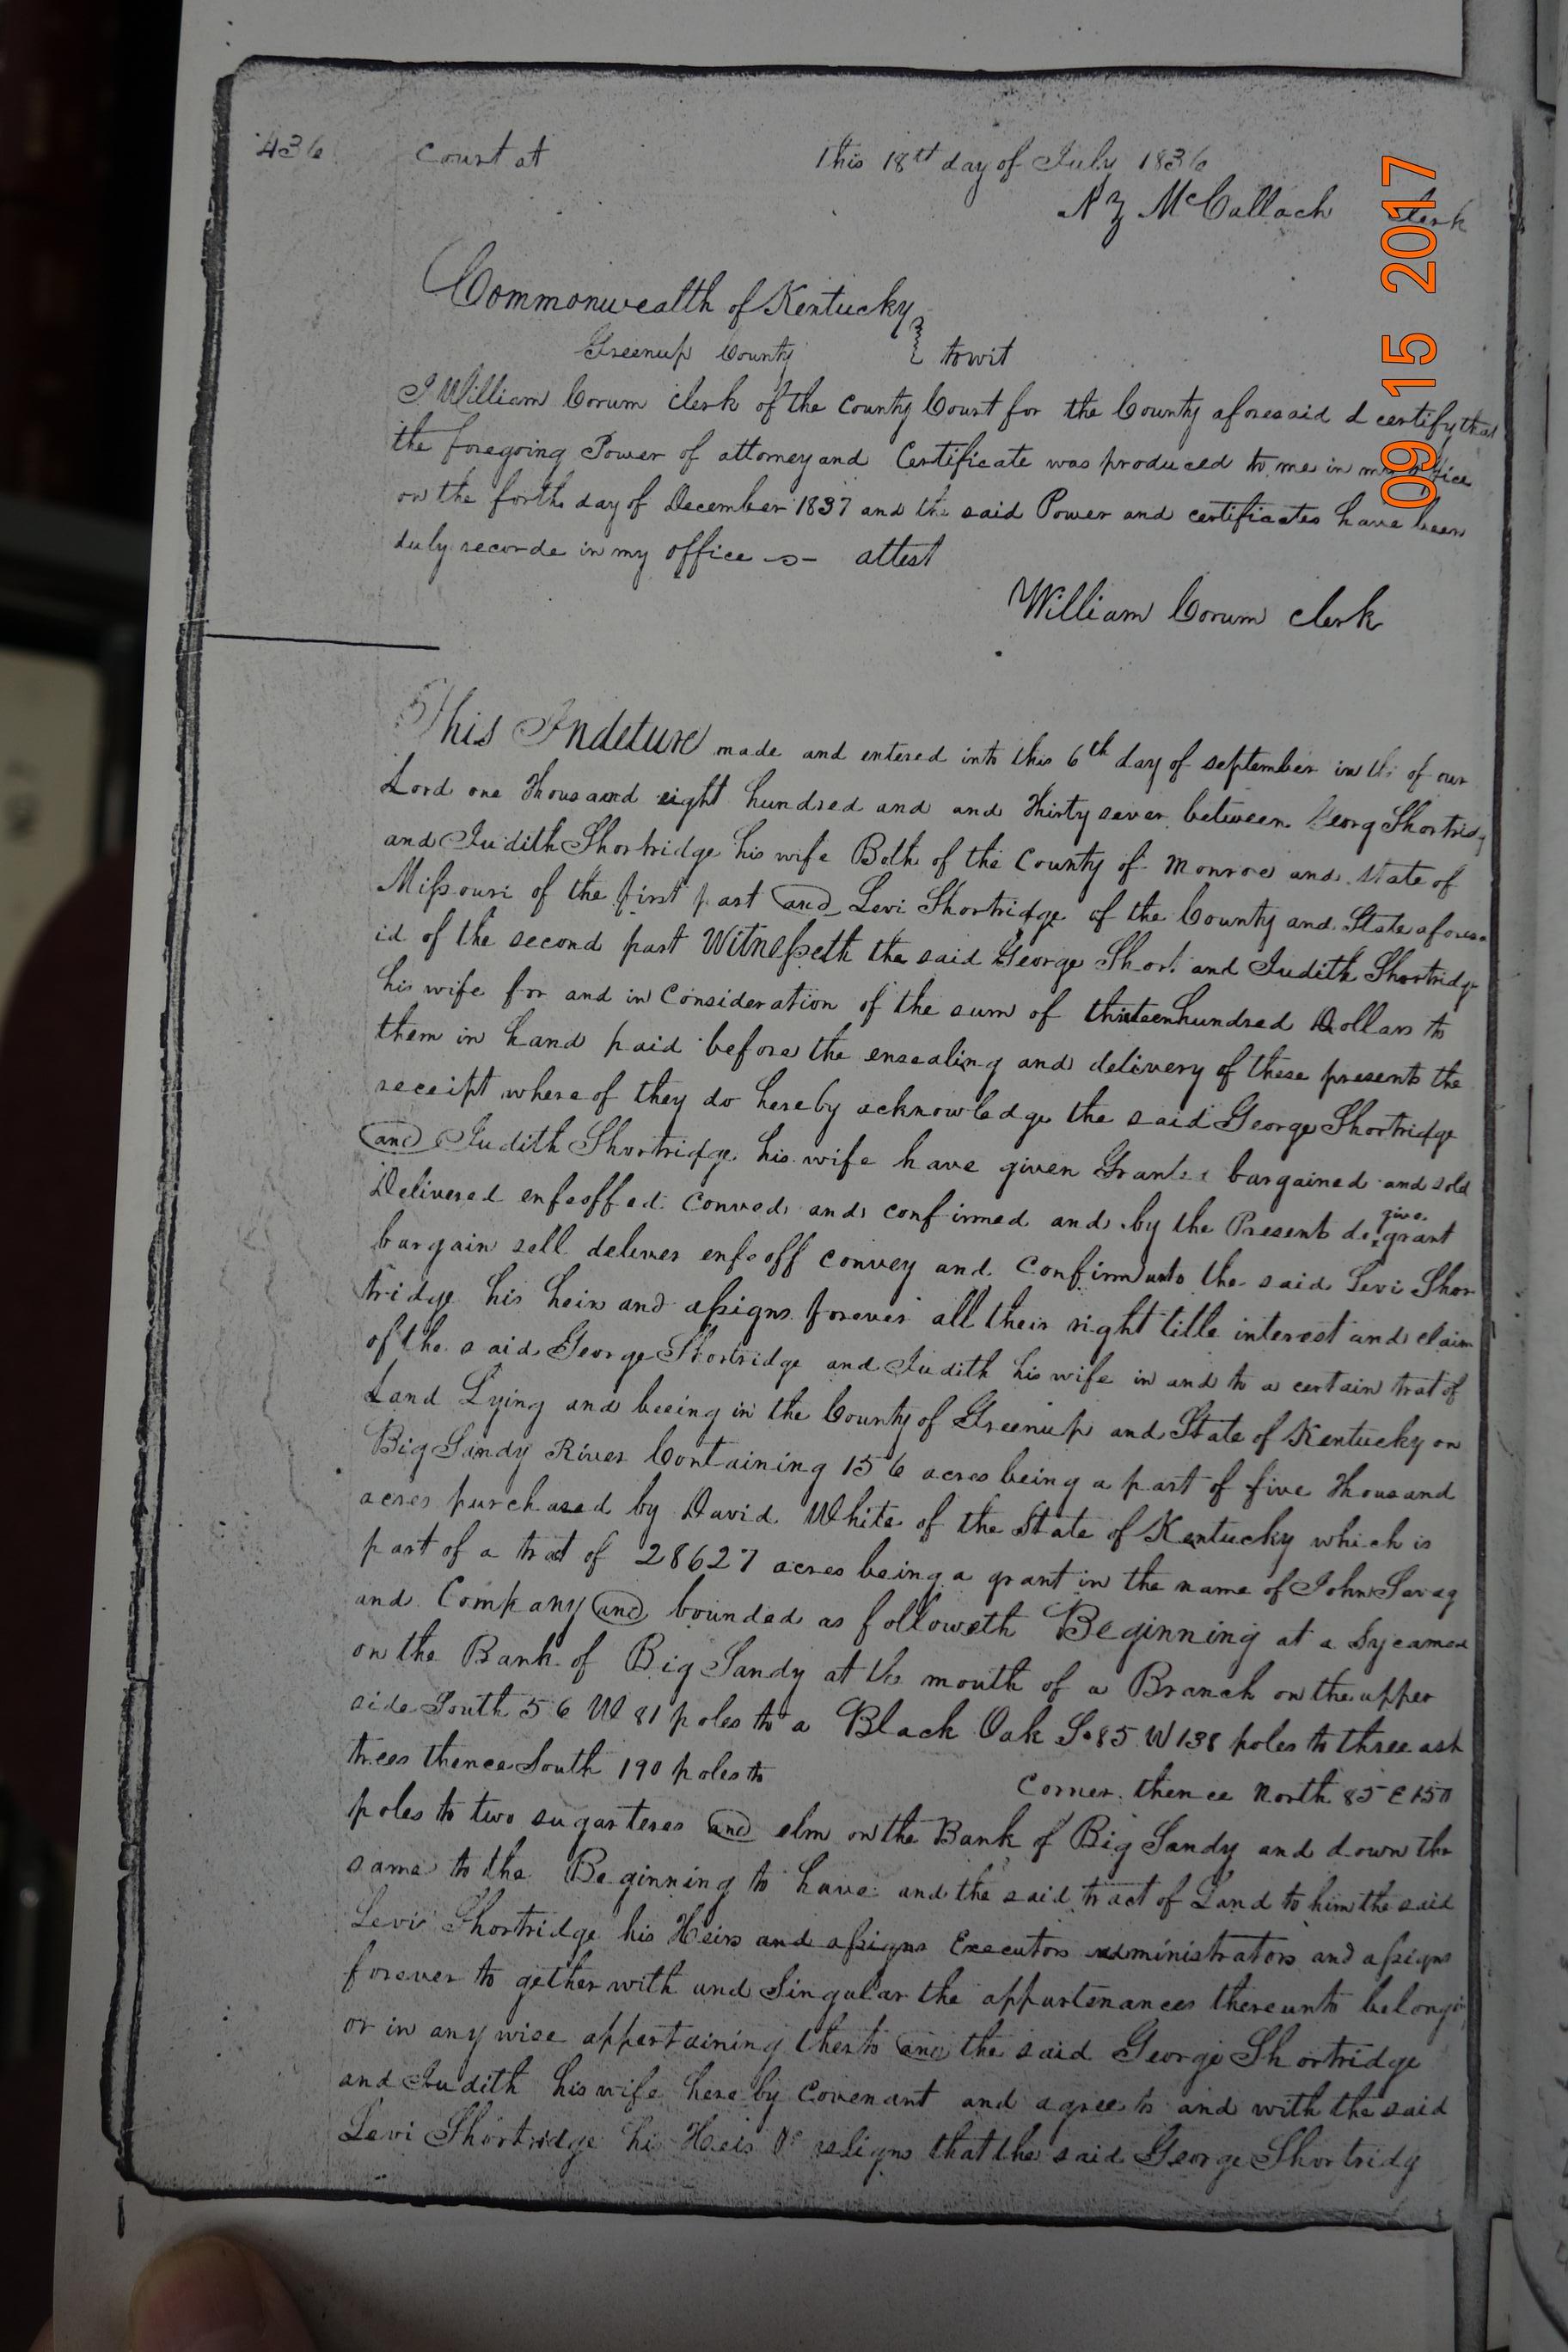 436 Court at This 18th day of July 1836
N Z McCallach Clerk
Commonwealth of Kentucky
Greenup County } towit
I William Corum clerk of the County Court for the County aforesaid d certify that
the foregoing Power of attorney and Certificate was produced to me in my office
on the forth day of December 1837 and the said Power and certificates have been
duly recorde in my office attest
William Corum clerk
This Indeture made and entered into this 6th day of september in the of our
Lord one thousand eight hundred and and thirty seven between Georg Shortridg
and Judith Shortridge his wife Both of the County of Monroe and state of
Missouri of the first part and Levi Shortridge of the County and State aforesa
id of the second part Witnesseth the said George Short and Judith Shortridge
his wife for and in Consideration of the sum of thirteen hundred Dollars to
them in hand paid before the ensealing and delivery of these presents the
receipt where of they do hereby acknowledge the said George Shortridge
and Judith Shortridge his wife have given Granted bargained and sold
Delivered enfeoffed Conved and confirmed and by the Present do give grant
bargain sell deliver enfeoff convey and Confirm unto the said Levi Shor
tridge his heirs and assigns forever all their right title interest and claim
of the said George Shortridge and Judith his wife in and to a certain trat of
Land Lying and beeing in the County of Greenup and State of Kentucky on
Big Sandy River Containing 156 acres being a part of five thousand
acres purchased by David White of the State of Kentucky which is
part of a trat of 28627 acres being a grant in the name of John Savag
and Company and bounded as followeth Beginning at a Sycamore
on the Bank of Big Sandy at the mouth of a Branch on the upper
side South 56 W 81 poles to a Black Oak So 85 W 138 poles to three ash
trees thence South 190 poles to Corner thence North 85 E 150
poles to two sugar teres and elm on the Bank of Big Sandy and down the
same to the Beginning to have and the said tract of Land to him the said
Levi Shortridge his Heirs and assigns Executors administrators and assigns
forever to gether with and Singular the appurtenances thereunto belongin
or in any wise appertaining therto and the said George Shortridge
and Judith his wife here by Covenant and agree to and with the said
Levi Shortridge his Heis assigns that the said George Shortridg
09 15 2017